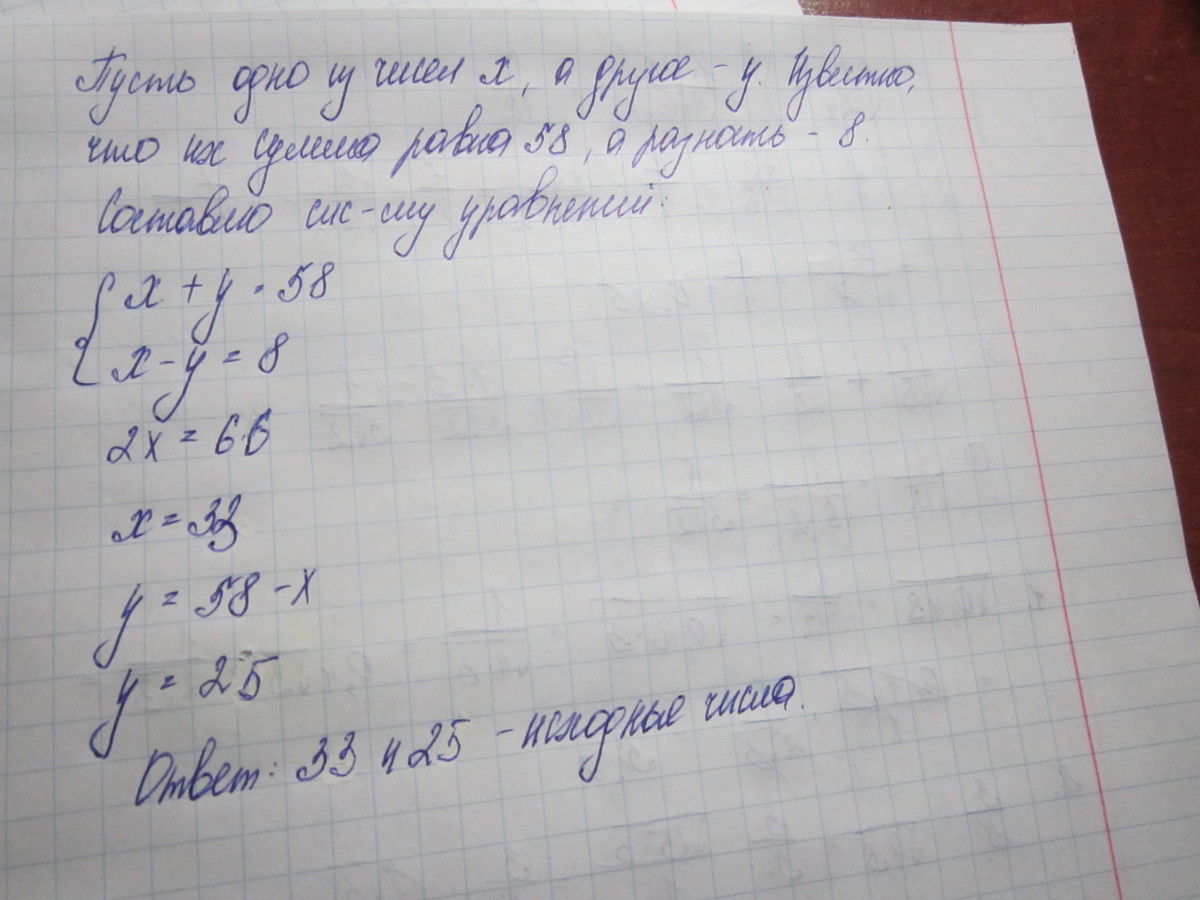 Пусть одно из чисел x, а другое - y. Известно,
что их сумма равна 58, а разность - 8.
Составлю сис-му уравнений:
x + y = 58
x - y = 8
2x = 66
x = 33
y = 58 - x
y = 25
Ответ: 33 и 25 - исходные числа.